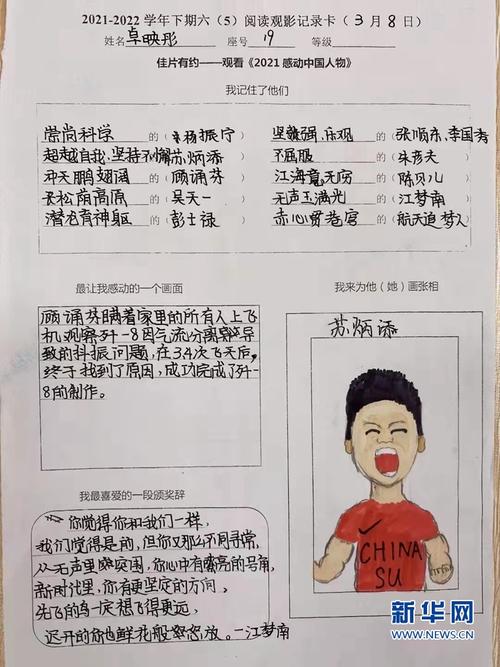 2021-2022 学年下期六（5）阅读观影记录卡（3月8日）
姓名 卓映彤 座号 19 等级
佳片有约——观看《2021 感动中国人物》
我记住了他们
崇尚科学 的（杨振宁） 坚强、乐观 的（张顺东、李国秀）
超越自我、坚持不懈 苏炳添） 不屈服 的（朱彦夫）
冲天鹏翅阔 的（顾诵芬） 江海竟无穷 的（陈贝儿）
长松荫高原 的（吴天一） 无声玉满光 的（江梦南）
潜龙育神躯 的（彭士禄） 赤心贯苍穹 的（航天追梦人）
最让我感动的一个画面
我来为他（她）画张相
顾诵芬瞒着家里的所有人上飞
机观察歼-8因气流分离
导致的抖振问题，在3、4次飞天后，
终于找到了原因，成功完成了歼-
8的制作。
苏炳添
CHINA
SU
我最喜爱的一段颁奖辞
你觉得你和我们一样，
我们觉得是前，但你又那么不同寻常，
从无声里突围，你心中有嘹亮的号角，
新时代里，你有更坚定的方向，
先飞的鸟一定想飞得更远，
迟开的你也鲜花般怒放。—江梦南
新华网
WWW.NEWS.CN